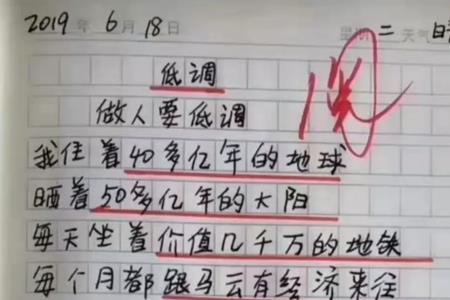 2019年6月18日 星期二 天气 晴
低调
做人要低调
我住着40多亿年的地球
晒着50多亿年的太阳
每天坐着价值几千万的地铁
每个月都跟马云有经济来往
阅